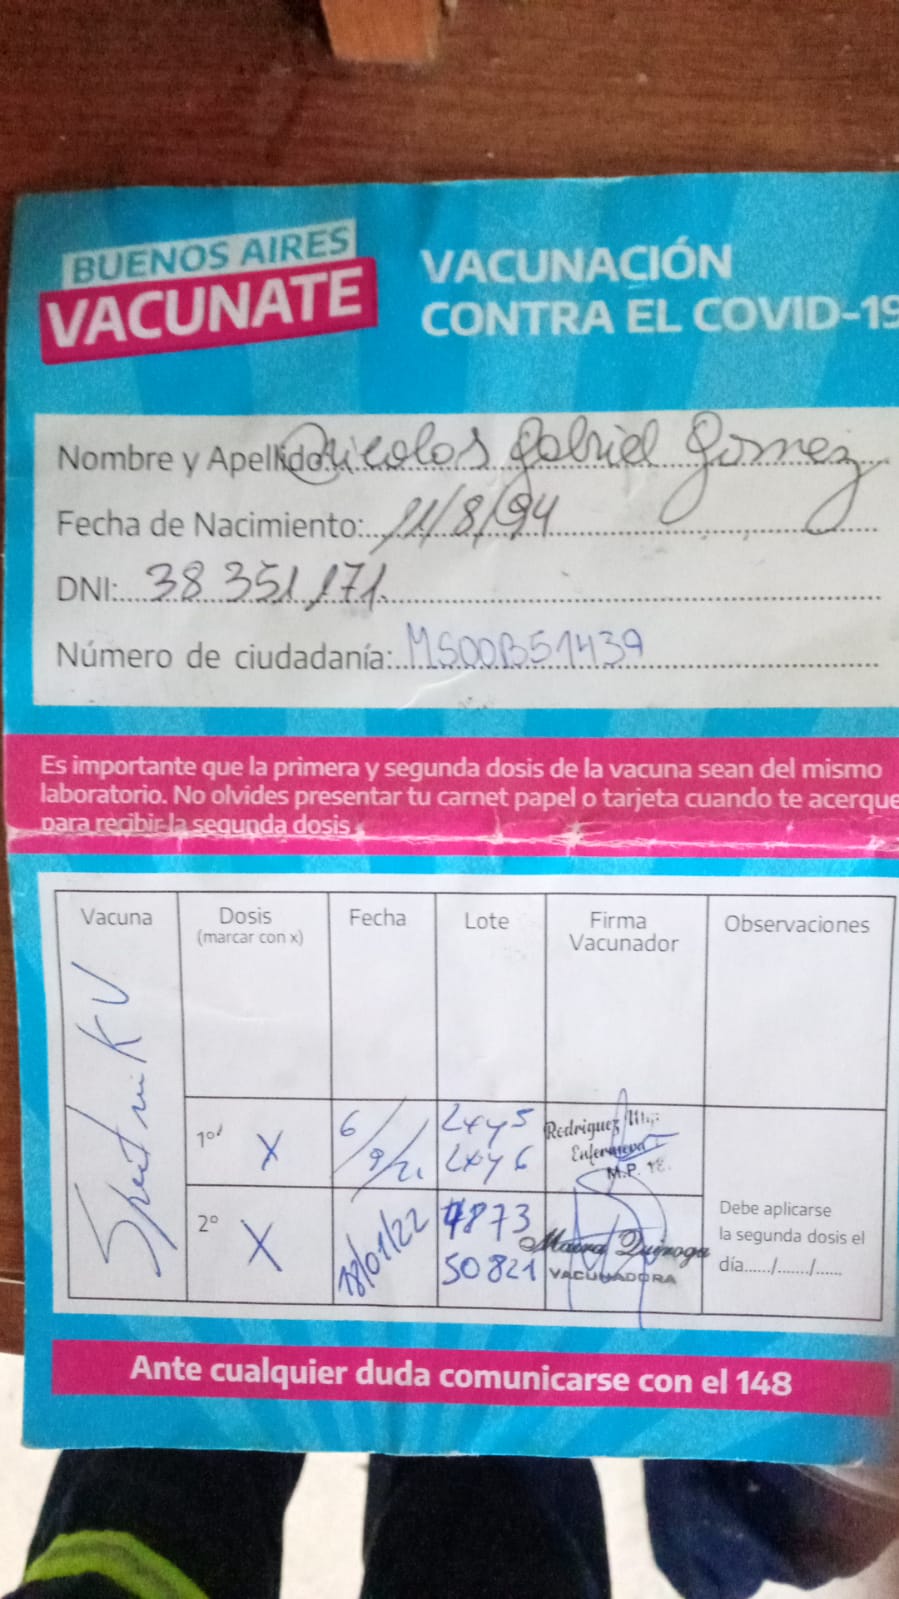 BUENOS AIRES
VACUNATE
VACUNACIÓN
CONTRA EL COVID-19
Nombre y Apellido: Nicolas Gabriel Gomez
Fecha de Nacimiento: 11/8/94
DNI: 38 351 171.
Número de ciudadanía: MS00B51439
Es importante que la primera y segunda dosis de la vacuna sean del mismo
laboratorio. No olvides presentar tu carnet papel o tarjeta cuando te acerque
para recibir la segunda dosis
Vacuna
Dosis
(marcar con x)
Fecha
Lote
Firma
Vacunador
Observaciones
Sputnik V
1º X
6/9/21
Rodriguez
Enfermera
M.P.
2º X
18/01/22
4873
50821
Maira Quiroga
VACUNADORA
Debe aplicarse
la segunda dosis el
día....../......./......
Ante cualquier duda comunicarse con el 148